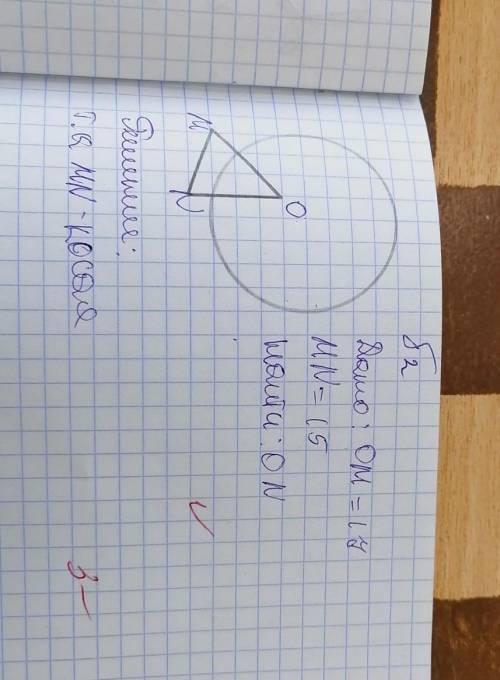 №2
Дано: OM = 17
MN = 15
Найти: ON
O
M
N
Решение:
Т.к MN - косая
3-